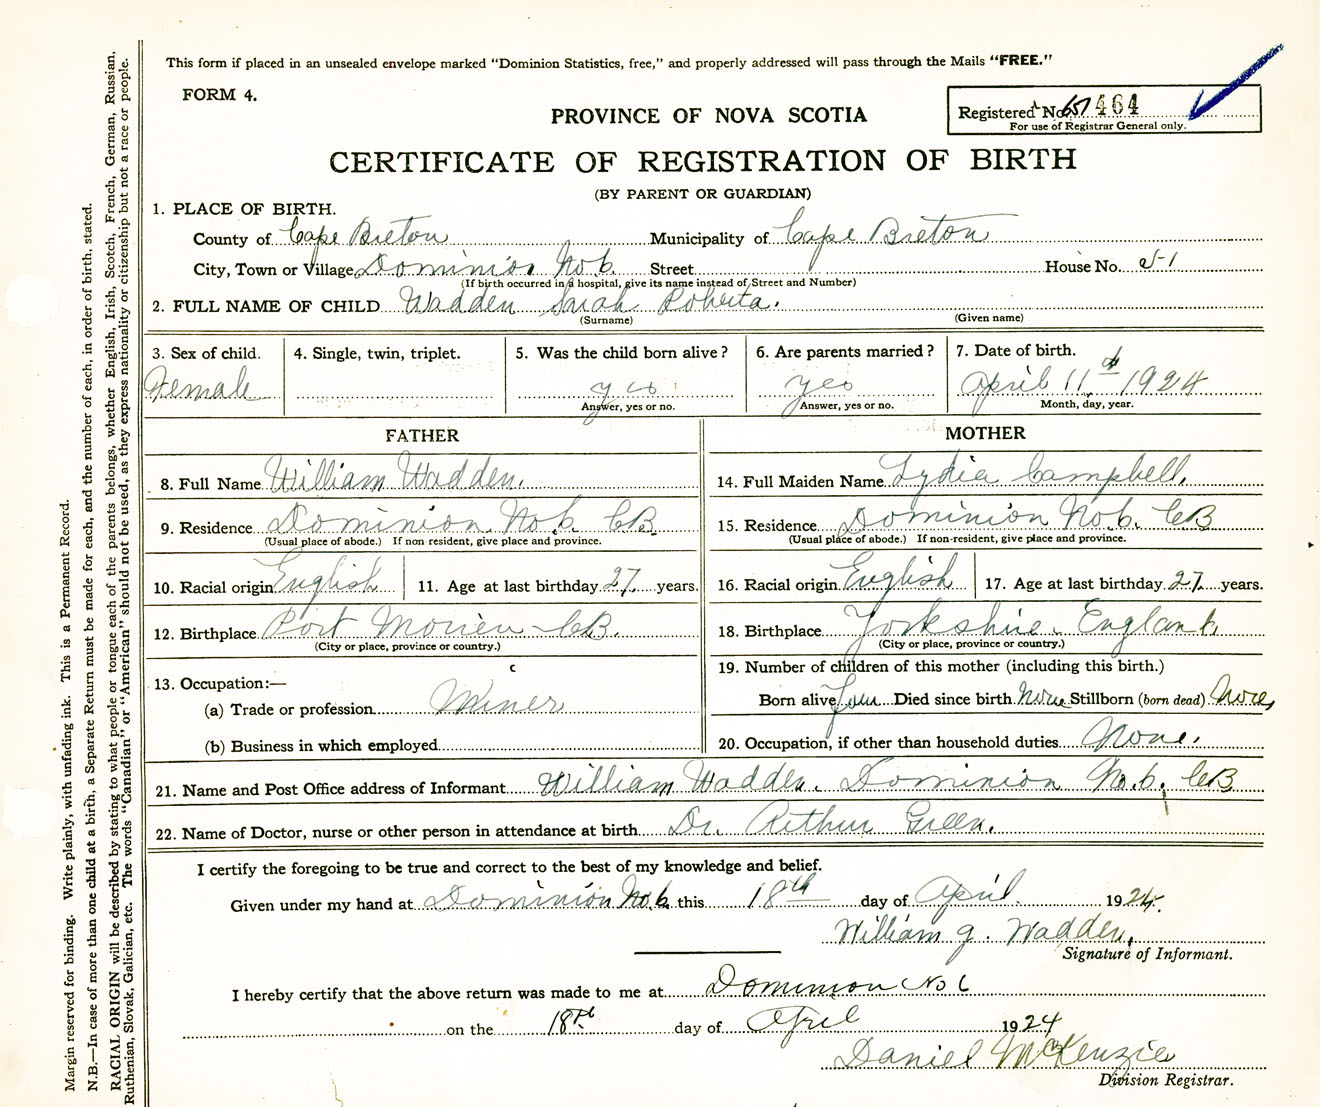 This form if placed in an unsealed envelope marked “Dominion Statistics, free,” and properly addressed will pass through the Mails “FREE.”
FORM 4.
Registered No. 464
For use of Registrar General only.
PROVINCE OF NOVA SCOTIA
CERTIFICATE OF REGISTRATION OF BIRTH
(BY PARENT OR GUARDIAN)
1. PLACE OF BIRTH.
County of Cape Breton Municipality of Cape Breton
City, Town or Village Dominion No. 6. Street House No. 51
(If birth occurred in a hospital, give its name instead of Street and Number)
2. FULL NAME OF CHILD Wadden Sarah Roberta.
(Surname) (Given name)
3. Sex of child. 4. Single, twin, triplet. 5. Was the child born alive? 6. Are parents married? 7. Date of birth.
Female yes yes April 11th 1924
Answer, yes or no. Answer, yes or no. Month, day, year.
FATHER MOTHER
8. Full Name William Wadden. 14. Full Maiden Name Lydia Campbell.
9. Residence Dominion No. 6. CB. 15. Residence Dominion No. 6. CB
(Usual place of abode.) If non-resident, give place and province. (Usual place of abode.) If non-resident, give place and province.
10. Racial origin English 11. Age at last birthday 27 years. 16. Racial origin English 17. Age at last birthday 27 years.
12. Birthplace Port Morien CB. 18. Birthplace Yorkshire. England.
(City or place, province or country.) (City or place, province or country.)
19. Number of children of this mother (including this birth.)
13. Occupation:—
(a) Trade or profession Miner Born alive four Died since birth None Stillborn (born dead) None
(b) Business in which employed 20. Occupation, if other than household duties None.
21. Name and Post Office address of Informant William Wadden. Dominion No. 6. CB
22. Name of Doctor, nurse or other person in attendance at birth Dr. Arthur Green.
I certify the foregoing to be true and correct to the best of my knowledge and belief.
Given under my hand at Dominion No. 6 this 18th day of April 1924.
William G. Wadden.
Signature of Informant.
I hereby certify that the above return was made to me at Dominion No 6
on the 18th day of April 1924
Daniel McKenzie
Division Registrar.
Margin reserved for binding. Write plainly, with unfading ink. This is a Permanent Record.
N.B.—In case of more than one child at a birth, a Separate Return must be made for each, and the number of each, in order of birth, stated.
RACIAL ORIGIN will be described by stating to what people or tongue each of the parents belongs, whether English, Irish, Scotch, French, German, Russian,
Ruthenian, Slovak, Galician, etc. The words “Canadian” or “American” should not be used, as they express nationality or citizenship but not a race or people.